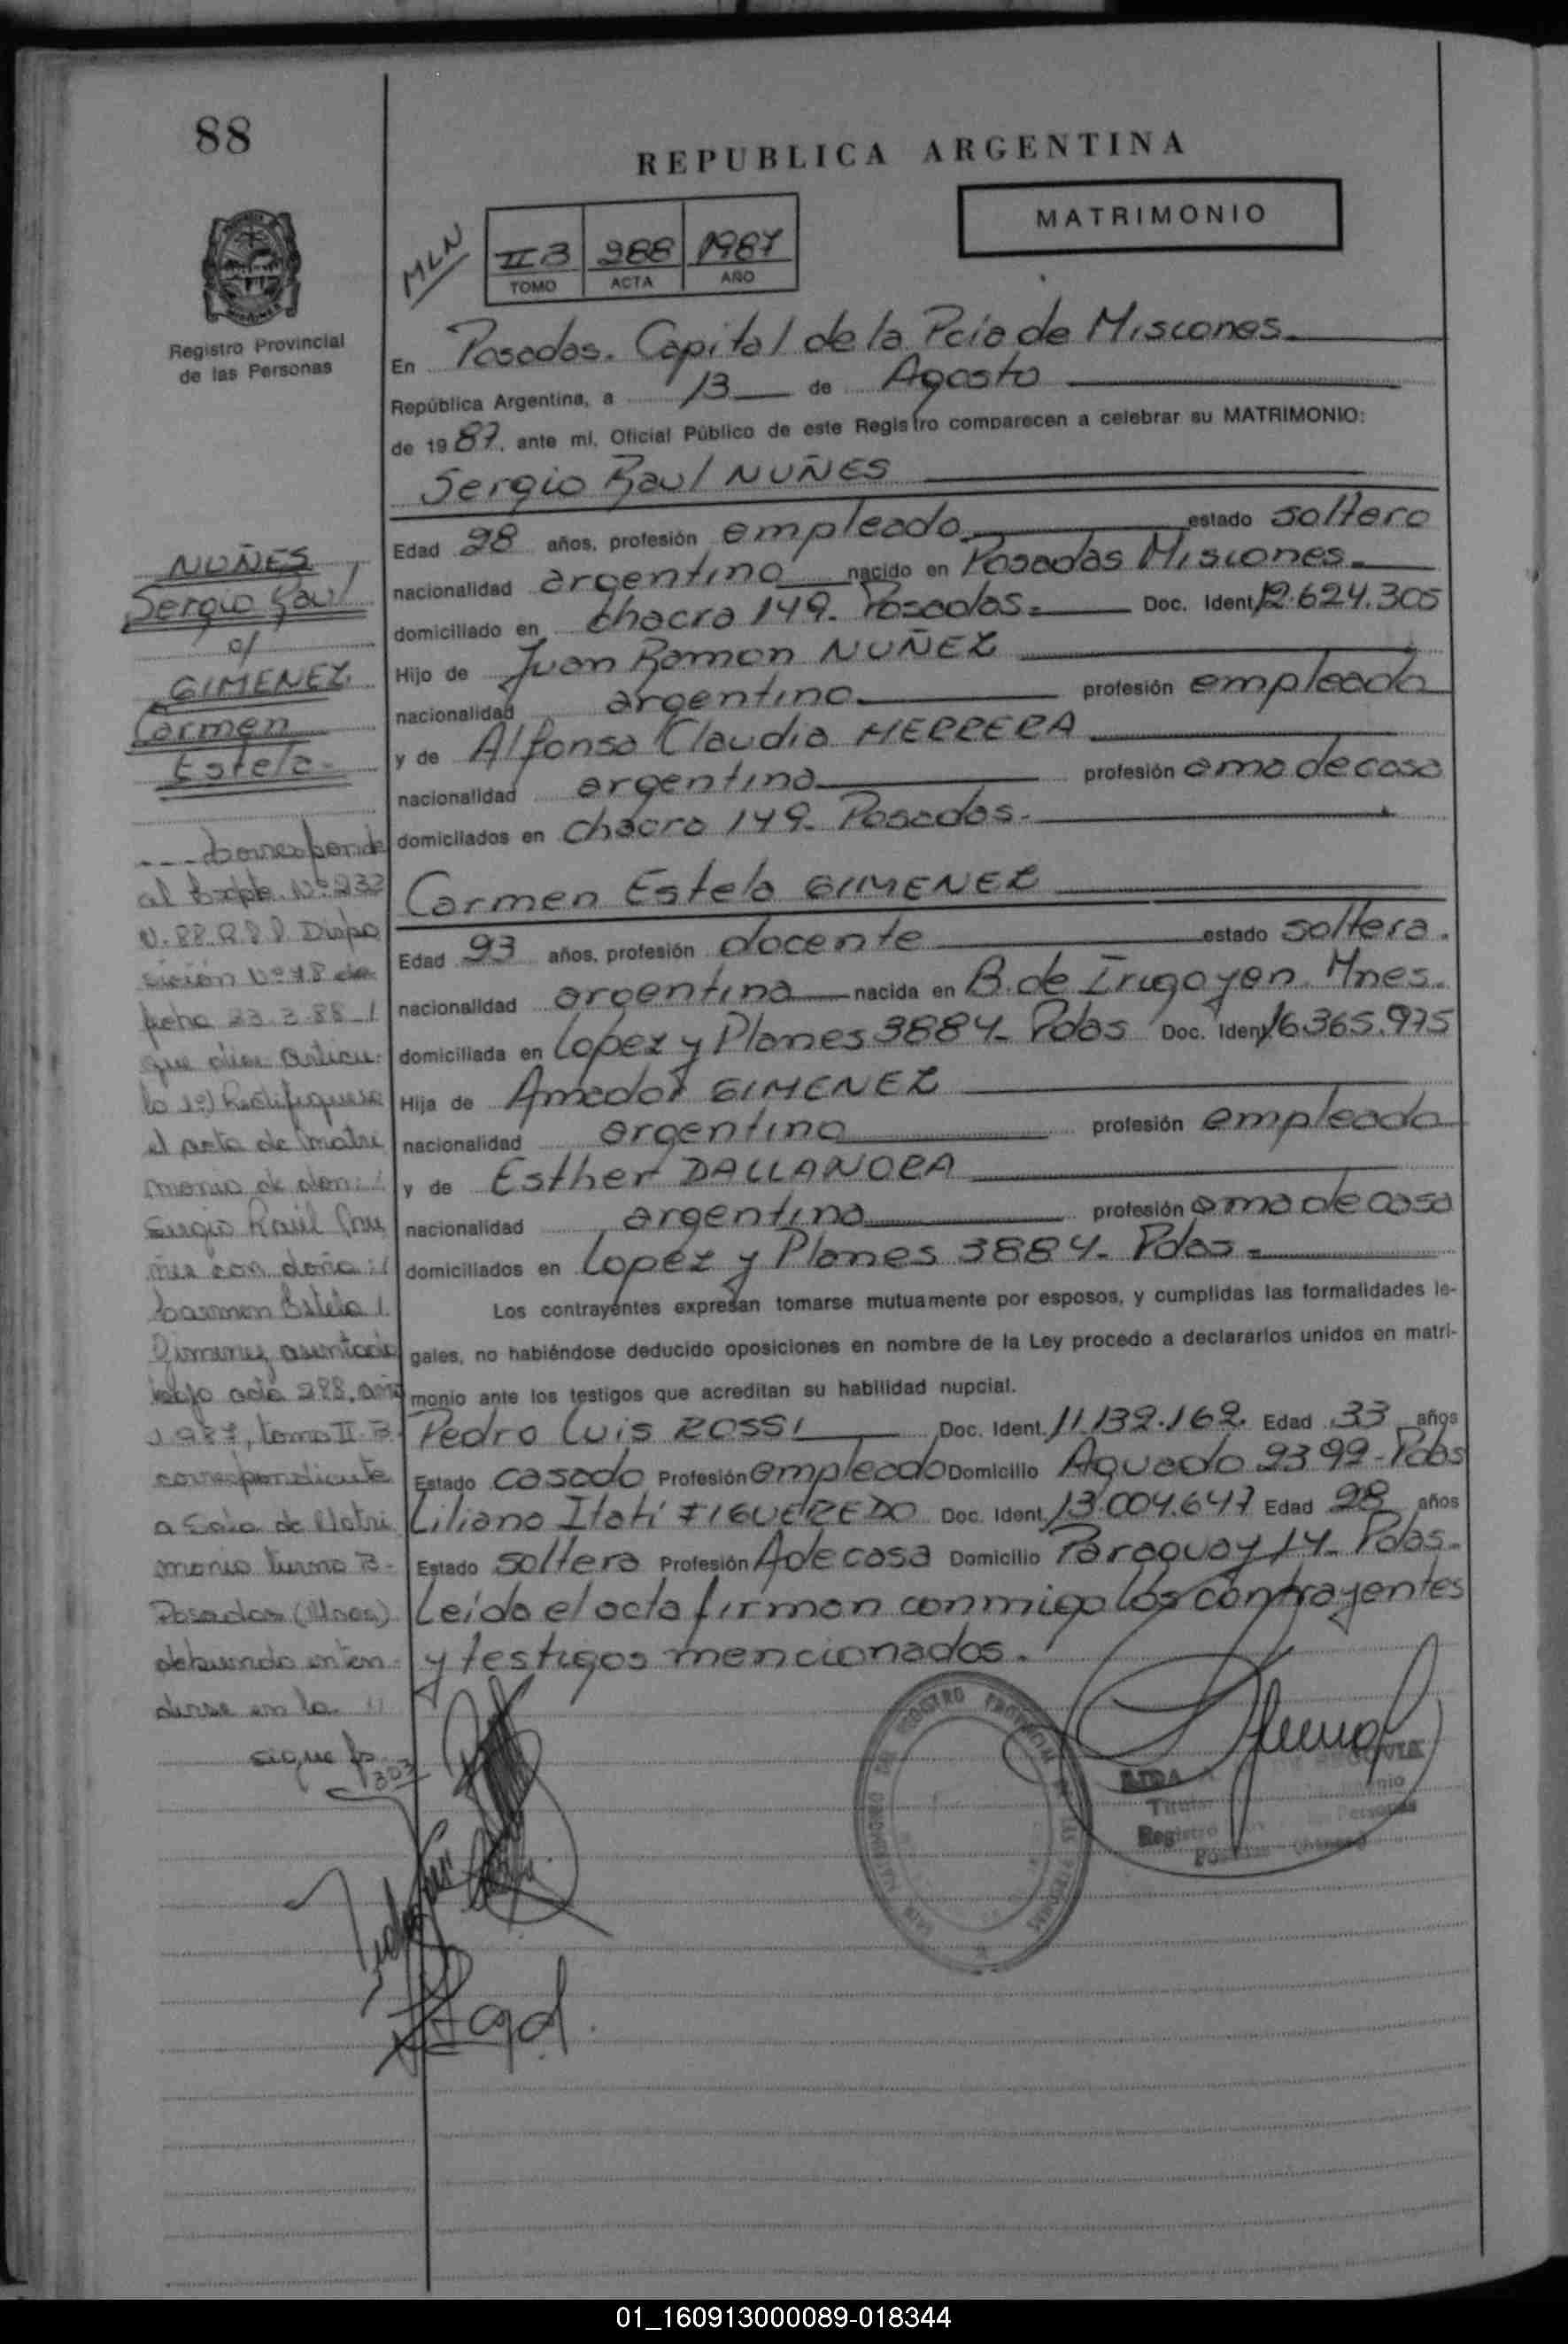 88
REPUBLICA ARGENTINA
MATRIMONIO
MLN
II B 288 1987
TOMO ACTA AÑO
Registro Provincial
de las Personas
En Posadas. Capital de la Pcia de Misiones.
República Argentina, a 13 de Agosto
de 1987, ante mí, Oficial Público de este Registro comparecen a celebrar su MATRIMONIO:
Sergio Raul NUÑES
Edad 28 años, profesión empleado estado soltero
nacionalidad argentino nacido en Posadas Misiones.
domiciliado en chacra 149. Posadas. Doc. Ident. 12.624.305
Hijo de Juan Ramon NUÑEZ
nacionalidad argentino. profesión empleado
y de Alfonsa Claudia HERRERA
nacionalidad argentina profesión ama de casa
domiciliados en chacra 149. Posadas.
Carmen Estela GIMENEZ
Edad 23 años, profesión docente estado soltera.
nacionalidad argentina nacida en B. de Irugoyen. Mnes.
domiciliada en Lopez y Planes 3884. Pdas Doc. Ident. 16.365.975
Hija de Amador GIMENEZ
nacionalidad argentino profesión empleado
y de Esther DALLANORA
nacionalidad argentina profesión ama de casa
domiciliados en Lopez y Planes 3884. Pdas.
Los contrayentes expresan tomarse mutuamente por esposos, y cumplidas las formalidades le-
gales, no habiéndose deducido oposiciones en nombre de la Ley procedo a declararlos unidos en matri-
monio ante los testigos que acreditan su habilidad nupcial.
Pedro Luis ROSSI Doc. Ident. 11.132.162 Edad 33 años
Estado casado Profesión empleado Domicilio Aguado 2399-Pdas
Liliana Itatí FIGUEREDO Doc. Ident. 13.004.647 Edad 28 años
Estado soltera Profesión A de casa Domicilio Paraguay 14. Pdas.
Leída el acta firman conmigo los contrayentes
y testigos mencionados.
NUÑES
Sergio Raul
c/
GIMENEZ
Carmen
Estela
Corresponde
al Expte. Nº 232
N. 88. R.P.P. Dispo
sición Nº 78 de
fecha 23.3.88 /
que dice Articu-
lo 1º) Rectifiquese
el acta de matri
monio de don: /
Sergio Raúl
con doña: /
Carmen Estela /
Gimenez asentada
bajo acta 288, año
1987, tomo II. B
correspondiente
a Sala de Matri
monio turno B-
Posadas (Mnes)
debiendo enten-
derse en la //
sigue fs
303
Registro
01_160913000089-018344